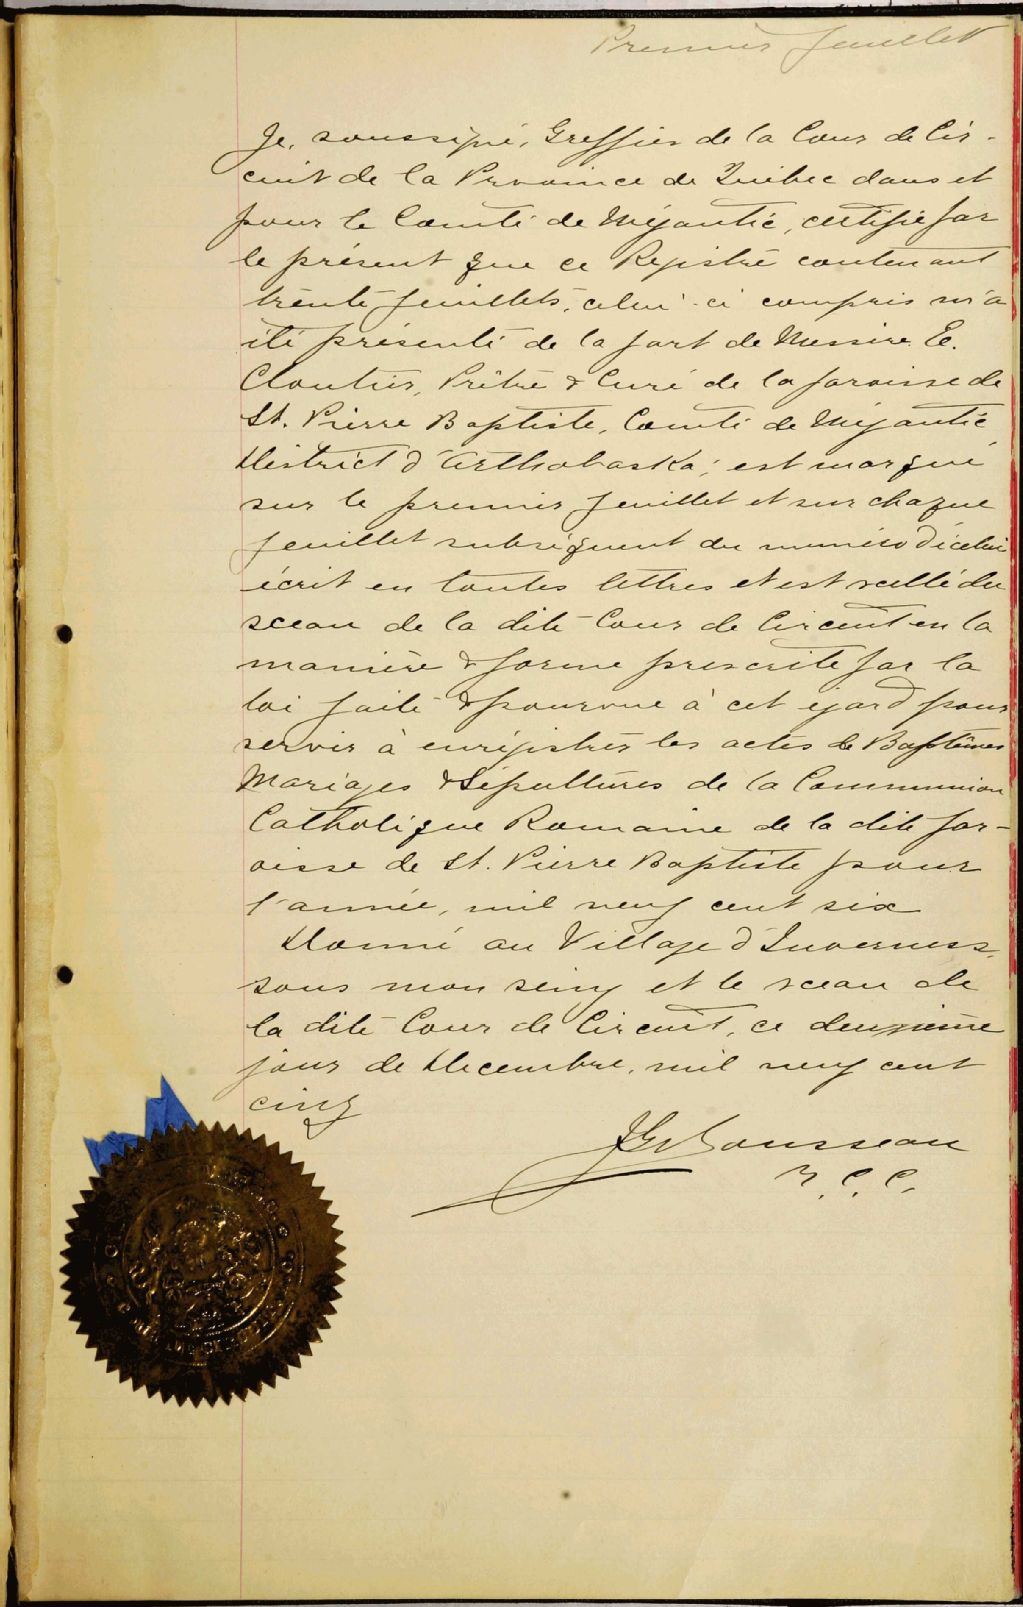 Premier feuillet
Je, soussigné, Greffier de la Cour de Cir-
cuit de la Province de Québec dans et
pour le Comté de Mégantic, certifie par
le présent que ce Registre contenant
trente feuillets, celui-ci compris m'a
été présenté de la part de Messire E.
Cloutier, Prêtre & Curé de la paroisse de
St. Pierre Baptiste, Comté de Mégantic
District d'Arthabaska; est marqué
sur le premier feuillet et sur chaque
feuillet subséquent du numéro d'icelui
écrit en toutes lettres et est scellé du
sceau de la dite Cour de Circuit en la
manière & forme prescrite par la
loi faite & pourvue à cet égard pour
servir à enrégistrer les actes de Baptêmes
Mariages & Sépultures de la Communion
Catholique Romaine de la dite par-
oisse de St. Pierre Baptiste pour
l'année, mil neuf cent six
Donné au Village d'Inverness,
sous mon seing et le sceau de
la dite Cour de Circuit, ce deuxième
jour de Decembre, mil neuf cent
cinq
Rousseau
C. C.